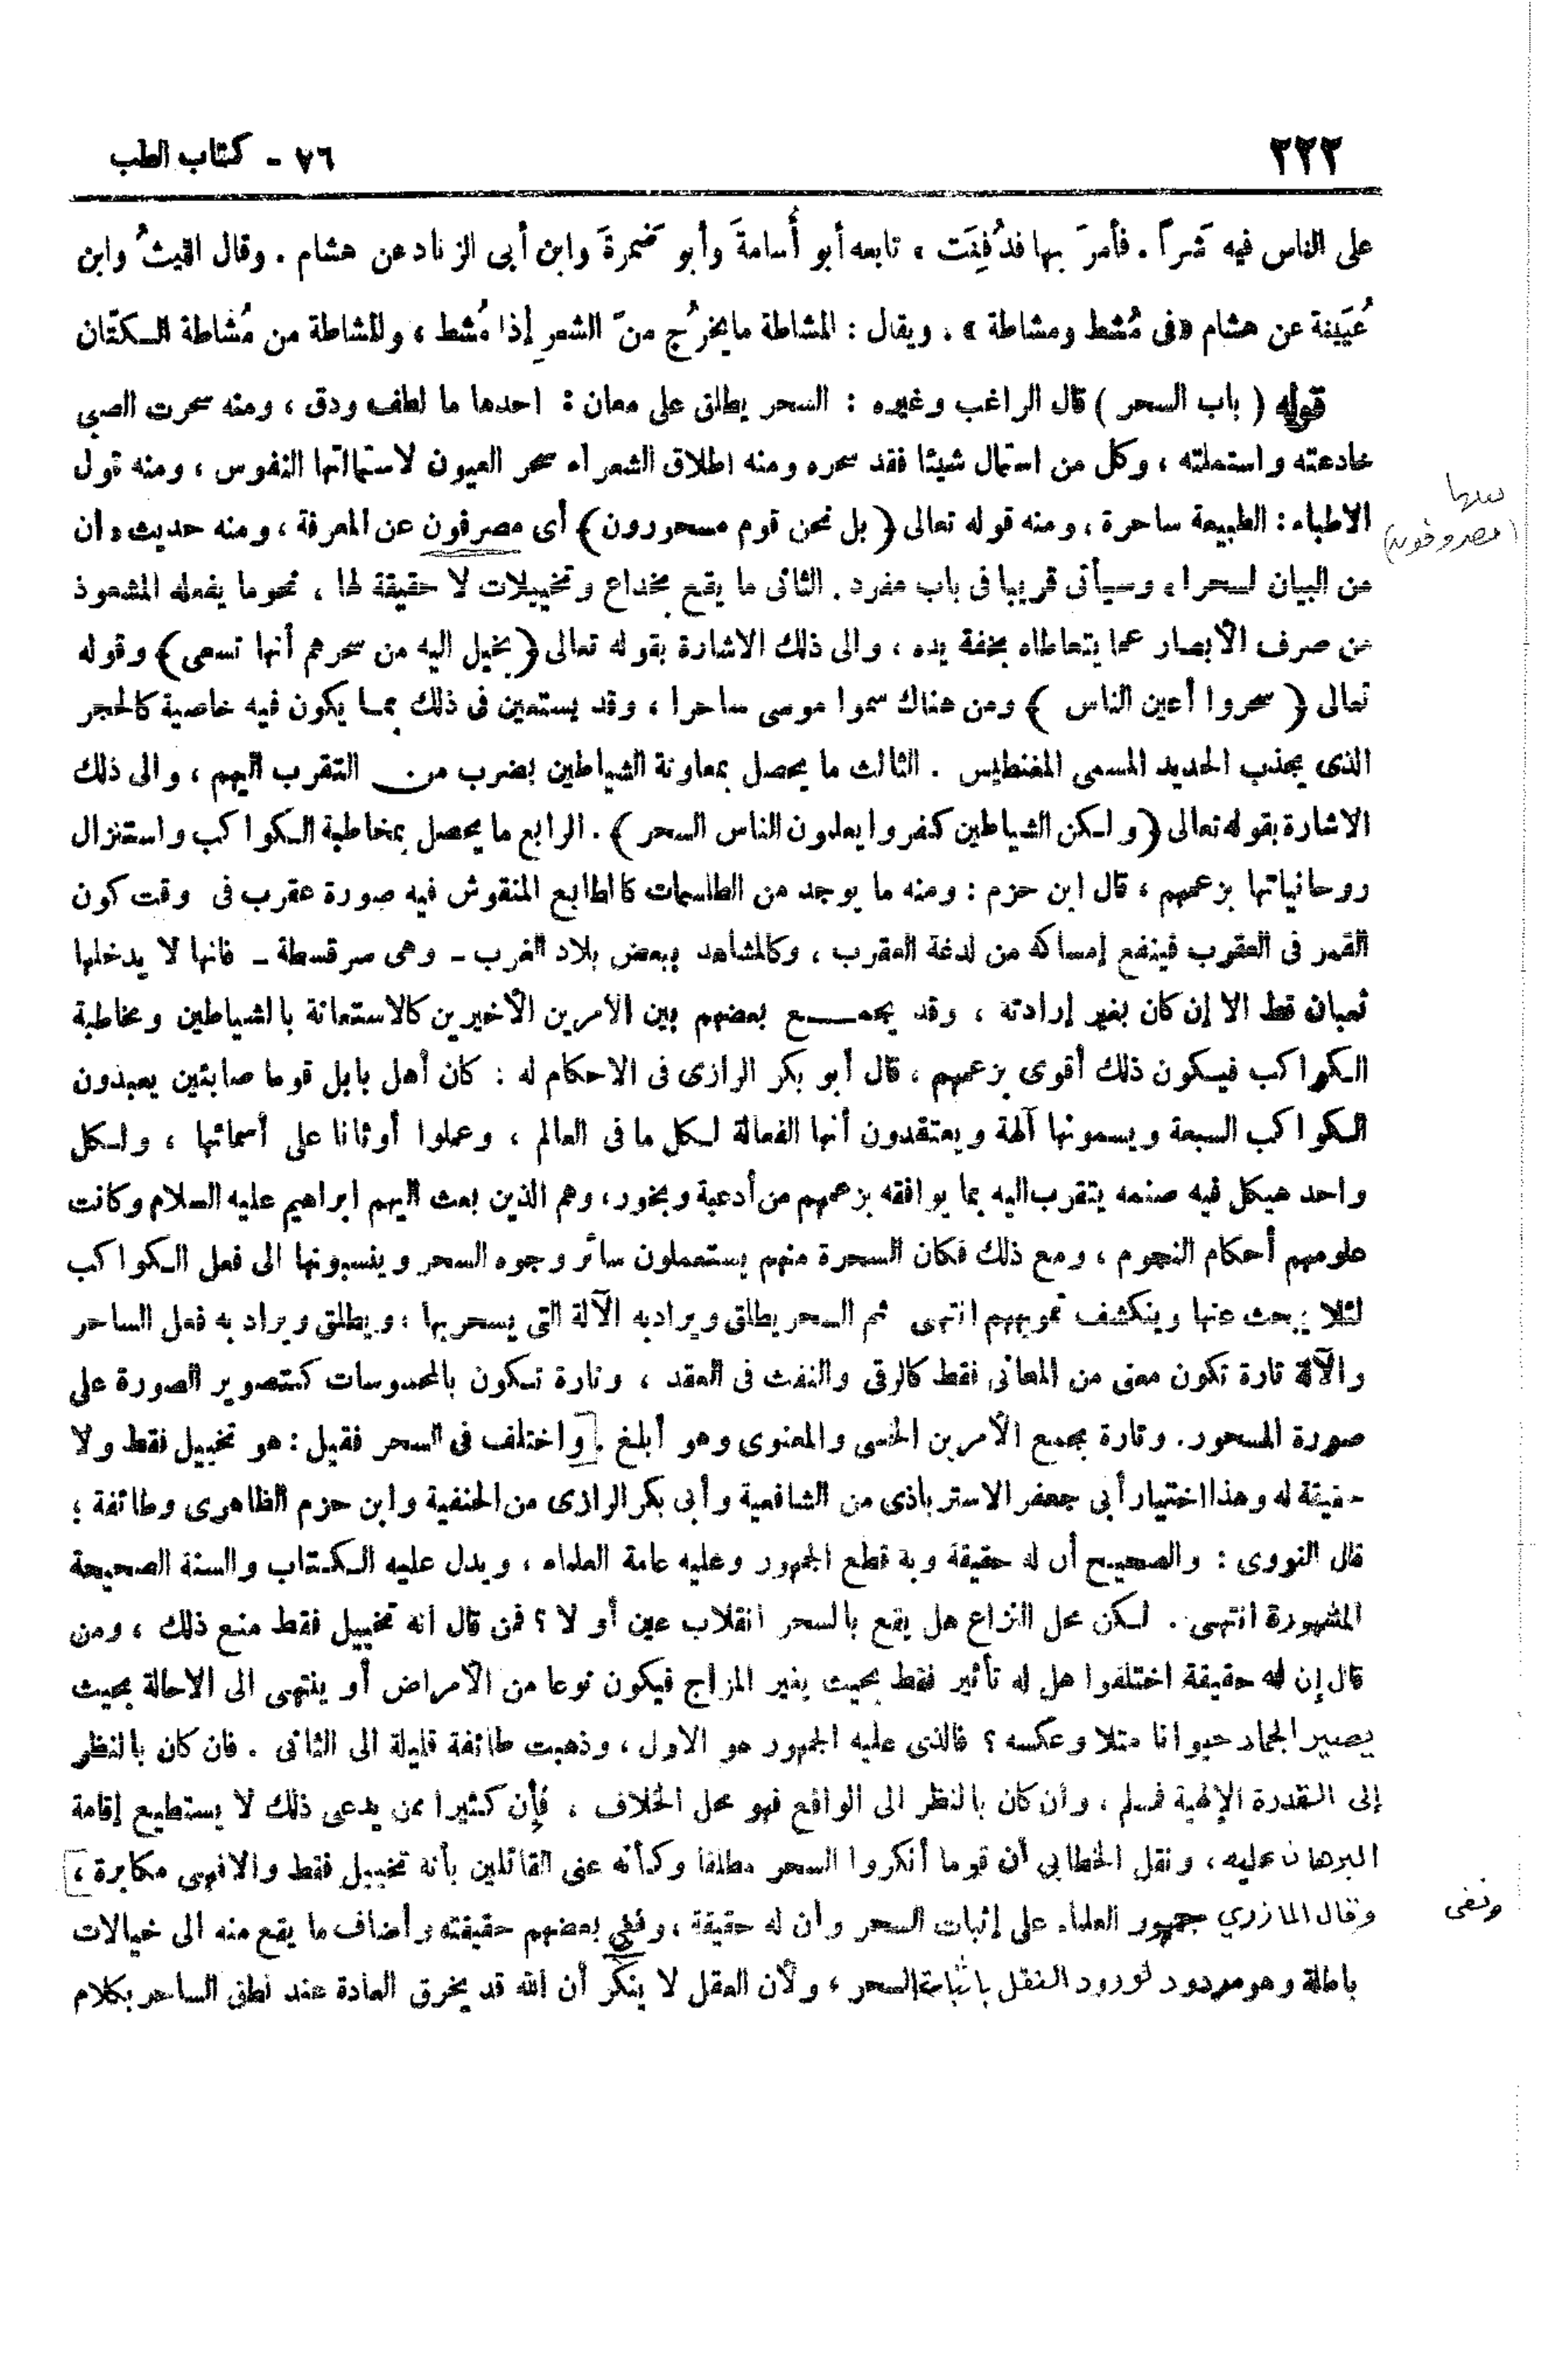 ٢٢٢
٧٦ - كتاب الطب
على الناس فيه شَراً . فأمرَ بها فدُفِنَت ، تابعه أبو أُسامةَ وأبو ضَمرةَ وابن أبى الزناد عن هشام . وقال الليثُ وابن
عُيَينة عن هشام « فى مُشط ومشاطة » . ويقال : المشاطة مايخرُج منَ الشعرِ إذا مُشط ، والمشاطة من مُشاطة الـكتّان
قوله ( باب السحر ) قال الراغب وغيره : السحر يطلق على معان : احدها ما لطف ودق ، ومنه سحرت الصبى
خادعته واستملته ، وكل من استمال شيئا فقد سحره ومنه اطلاق الشعراء سحر العيون لاستمالتها النفوس ، ومنه قول
الاطباء : الطبيعة ساحرة ، ومنه قوله تعالى ﴿ بل نحن قوم مسحورون ﴾ أى مصرفون عن المعرفة ، ومنه حديث « ان
لعلها
(مصروفون)
من البيان لسحرا » وسيأتى قريبا فى باب مفرد . الثانى ما يقع بخداع وتخييلات لا حقيقة لها ، نحو ما يفعله المشعوذ
من صرف الأبصار عما يتعاطاه بخفة يده ، والى ذلك الاشارة بقوله تعالى ﴿ يخيل اليه من سحرهم أنها تسعى ﴾ وقوله
تعالى ﴿ سحروا أعين الناس ﴾ ومن هناك سموا موسى ساحرا ، وقد يستعين فى ذلك بمـا يكون فيه خاصية كالحجر
الذى يجذب الحديد المسمى المغنطيس . الثالث ما يحصل بمعاونة الشياطين بضرب من التقرب اليهم ، والى ذلك
الاشارة بقوله تعالى ﴿ ولـكن الشياطين كفروا يعلمون الناس السحر ﴾ . الرابع ما يحصل بمخاطبة الـكواكب واستنزال
روحانياتها بزعمهم ، قال ابن حزم : ومنه ما يوجد من الطلسمات كالطابع المنقوش فيه صورة عقرب فى وقت كون
القمر فى العقرب فينفع إمساكه من لدغة العقرب ، وكالمشاهد ببعض بلاد الغرب - وهى سرقسطة - فانها لا يدخلها
ثعبان قط الا إن كان بغير إرادته ، وقد يجمـــع بعضهم بين الأمرين الأخيرين كالاستعانة بالشياطين ومخاطبة
الـكواكب فيـكون ذلك أقوى بزعمهم ، قال أبو بكر الرازى فى الاحكام له : كان أهل بابل قوما صابئين يعبدون
الـكواكب السبعة ويسمونها آلهة ويعتقدون أنها الفعالة لـكل ما فى العالم ، وعملوا أوثانا على أسمائها ، ولـكل
واحد هيكل فيه صنمه يتقرب اليه بما يوافقه بزعمهم من أدعية وبخور ، وهم الذين بعث اليهم ابراهيم عليه السلام وكانت
علومهم أحكام النجوم ، ومع ذلك فكان السحرة منهم يستعملون سائر وجوه السحر وينسبونها الى فعل الـكواكب
لئلا يبحث عنها وينكشف تمويههم انتهى ثم السحر يطلق ويراد به الآلة التى يسحر بها ، ويطلق ويراد به فعل الساحر
والآلة تارة تكون معنى من المعانى فقط كالرقى والنفث فى العقد ، وتارة تـكون بالمحسوسات كـتصوير الصورة على
صورة المسحور . وتارة بجمع الأمرين الحسى والمعنوى وهو أبلغ . [واختلف فى السحر فقيل : هو تخييل فقط ولا
حقيقة له وهذا اختيار أبى جعفر الاستر باذى من الشافعية وأبى بكر الرازى من الحنفية وابن حزم الظاهرى وطائفة ؛
قال النووى : والصحيح أن له حقيقة وبه قطع الجمهور وعليه عامة العلماء ، ويدل عليه الـكـتاب والسنة الصحيحة
المشهورة انتهى . لـكن محل النزاع هل يقع بالسحر انقلاب عين أو لا ؟ فمن قال انه تخييل فقط منع ذلك ، ومن
قال إن له حقيقة اختلفوا هل له تأثير فقط بحيث يغير المزاج فيكون نوعا من الأمراض أو ينتهى الى الاحالة بحيث
يصير الجماد حيوانا مثلا وعكسه ؟ فالذى عليه الجمهور هو الاول ، وذهبت طائفة قليلة الى الثانى . فان كان بالنظر
إلى القدرة الإلهية فمسلم ، وان كان بالنظر الى الواقع فهو محل الخلاف ، فإن كثيرا ممن يدعى ذلك لا يستطيع إقامة
البرهان عليه ، ونقل الخطابى أن قوما أنكروا السحر مطلقا وكأنه عنى القائلين بأنه تخييل فقط والا فهى مكابرة ،]
وقال المازري جمهور العلماء على إثبات السحر وأن له حقيقة ، وفقي بعضهم حقيقته وأضاف ما يقع منه الى خيالات
ونفى
باطلة وهو مردود لورود النقل باثبات السحر ، ولأن العقل لا ينكر أن الله قد يخرق العادة عند نطق الساحر بكلام